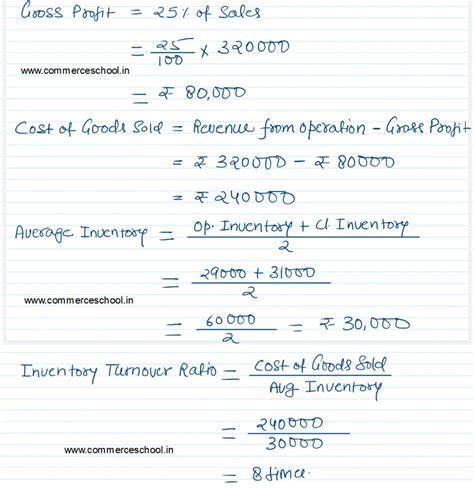 Gross Profit = 25% of Sales
= 25/100 × 320000
www.commerceschool.in
= ₹ 80,000
Cost of Goods Sold = Revenue from operation - Gross Profit
= ₹ 320000 - ₹ 80000
= ₹ 240000
Average Inventory = Op. Inventory + Cl. Inventory / 2
= 29000 + 31000 / 2
www.commerceschool.in
= 60000 / 2 = ₹ 30,000
Inventory Turnover Ratio = Cost of Goods Sold / Avg Inventory
= 240000 / 30000
www.commerceschool.in
= 8 time.